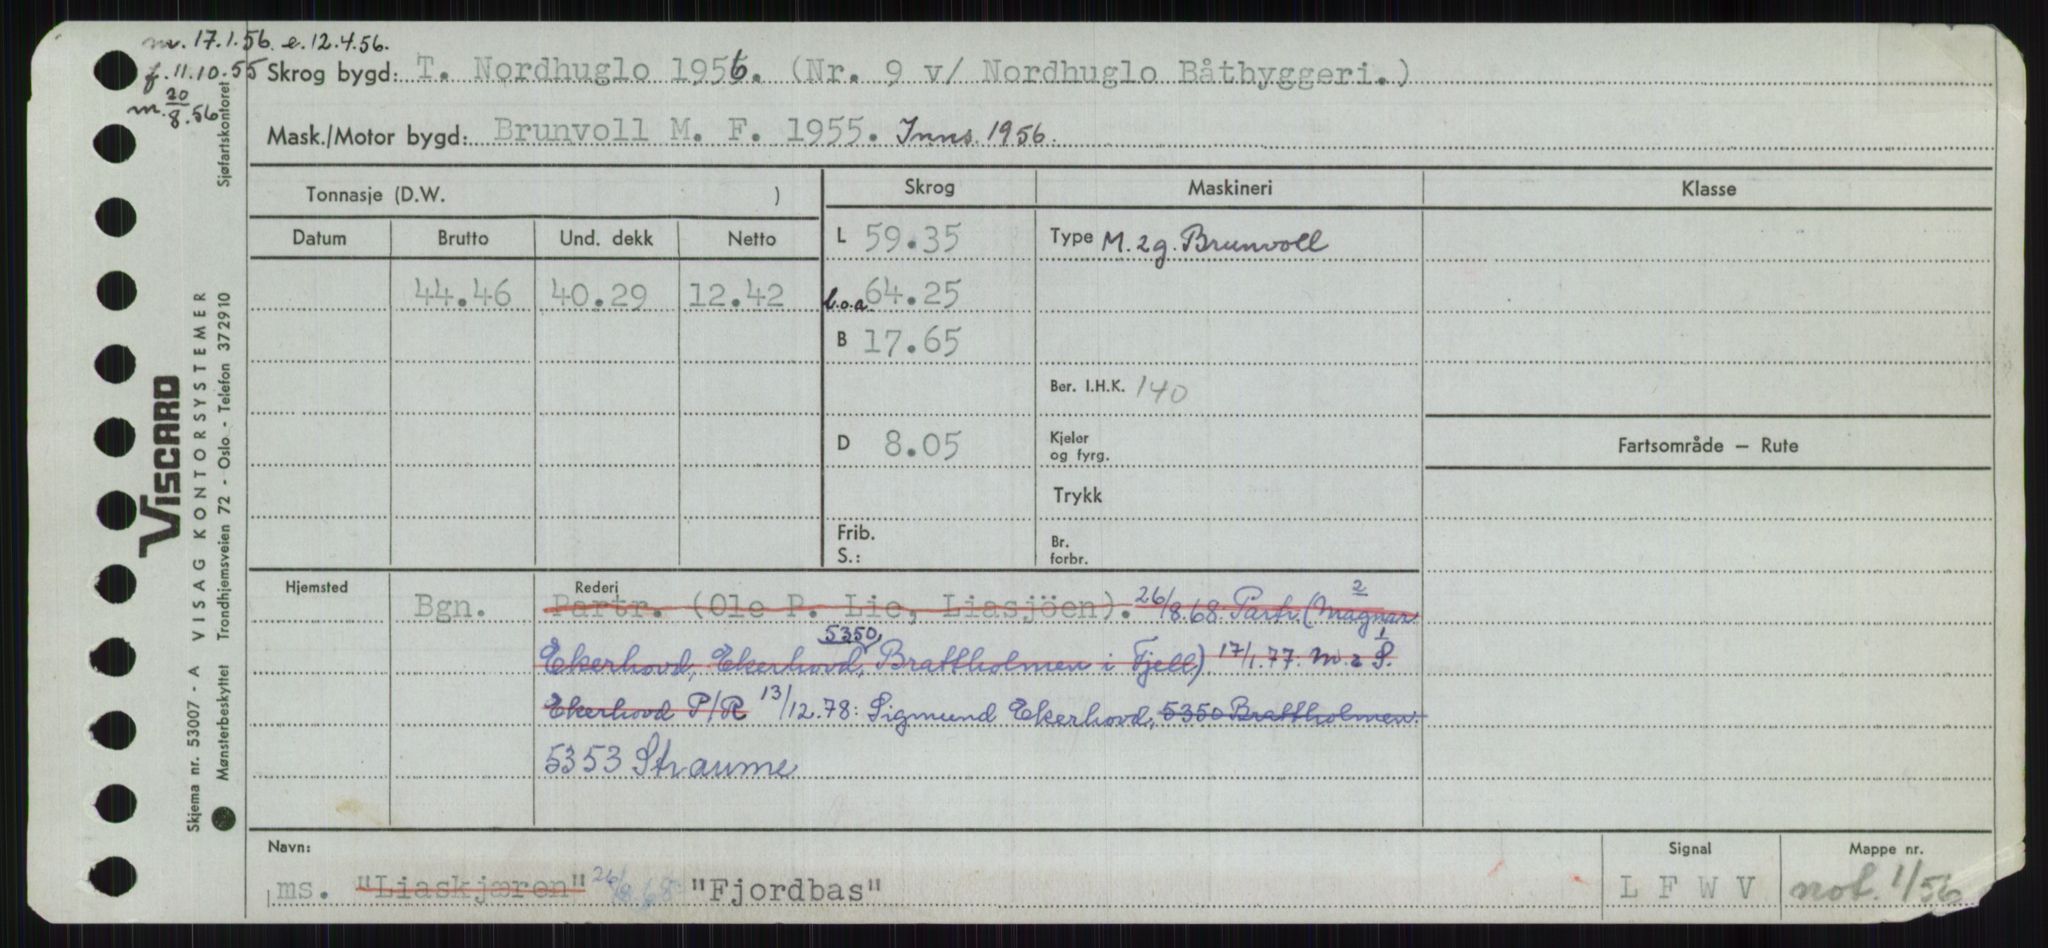 m. 17.1.56. e. 12.4.56.
f. 11.10.55
m. 20/8.56
Skrog bygd: T. Nordhuglo 1956. (Nr. 9 v/ Nordhuglo Båtbyggeri.)
Mask./Motor bygd: Brunvoll M. F. 1955. Inns. 1956.
Tonnasje (D.W. )
Skrog Maskineri Klasse
Datum Brutto Und. dekk Netto
L 59.35 Type M. 2g. Brunvoll
44.46 40.29 12.42 l.o.a 64.25
B 17.65
Ber. I.H.K. 140
D 8.05 Kjeler og fyrg.
Fartsområde — Rute
Trykk
Frib. S.: Br. forbr.
Hjemsted Rederi
Bgn. Partr. (Ole P. Lie, Liasjöen). 26/8.68. Partr. (Magnar 2
Ekerhovd, Ekerhovd, 5350, Brattholmen i Fjell) 17/1.77. M. & S. 1
Ekerhovd P/R 13/12.78: Sigmund Ekerhovd, 5350 Brattholmen.
5353 Straume
Navn: Signal Mappe nr.
ms. "Liaskjæren" 26/8.68 "Fjordbas" L F W V not. 1/56
Skjema nr. 53007 - A VISAG KONTORSYSTEMER
VISCARD
Mønsterbeskyttet Trondhjemsveien 72 - Oslo - Telefon 372910
Sjøfartskontoret